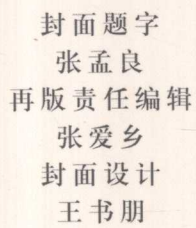 封面题字
张孟良
再版责任编辑
张爱乡
封面设计
王书朋